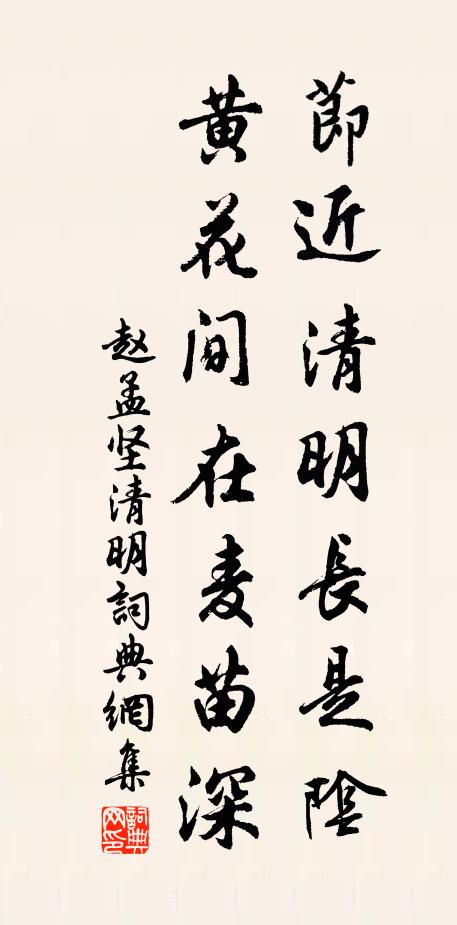 節近清明長是陰
黄花间在麦苗深
赵孟坚清明詞典網集
詞典网印